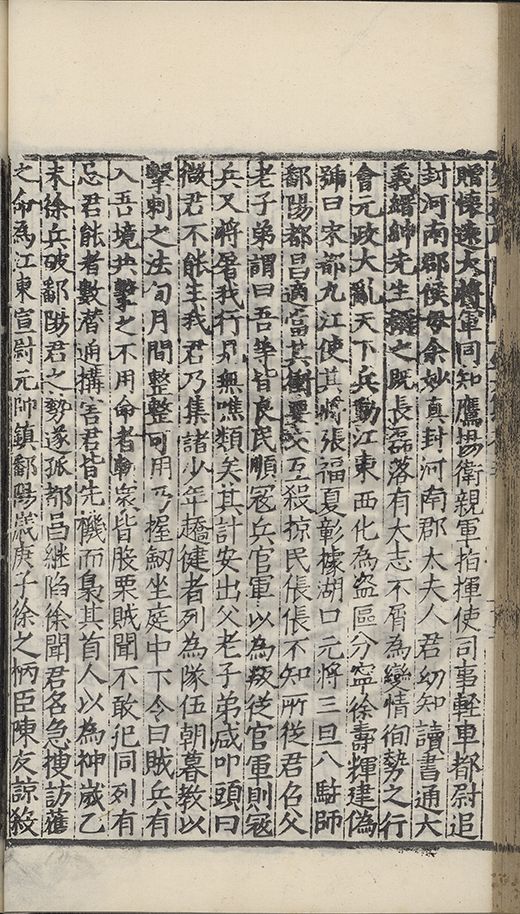 贈懷遠大將軍同知鷹揚衛親軍指揮使司事軽車都尉追
封河南郡侯母余妙真封河南郡太夫人君幼知讀書通大
義縉紳先生稱之既長磊落有大志不屑為孌情徇勢之行
會元政大亂天下兵動江東西化為盜區分寧徐壽輝建偽
號曰宋都九江使其將張福夏彰據湖口元將三旦八駐師
鄱陽都昌適當其衝要交互殺掠民倀倀不知所從君召父
老子弟謂曰吾等皆良民順寇兵官軍以為叛從官軍則寇
兵又將屠我行見無噍類矣其計安出父老子弟咸叩頭曰
微君不能生我君乃集諸少年趫健者列為隊伍朝暮教以
擊刺之法旬月間整整可用乃握劒坐庭中下令曰賊兵有
入吾境共擊之不用命者斬衆皆股栗賊聞不敢犯同列有
忌君能者數潜通搆害君皆先機而梟其首人以為神歲乙
未徐兵破鄱陽君之勢遂孤都昌継陷徐聞君名急搜訪舊
之命為江東宣尉元帥鎮鄱陽歲庚子徐之柄臣陳友諒殺